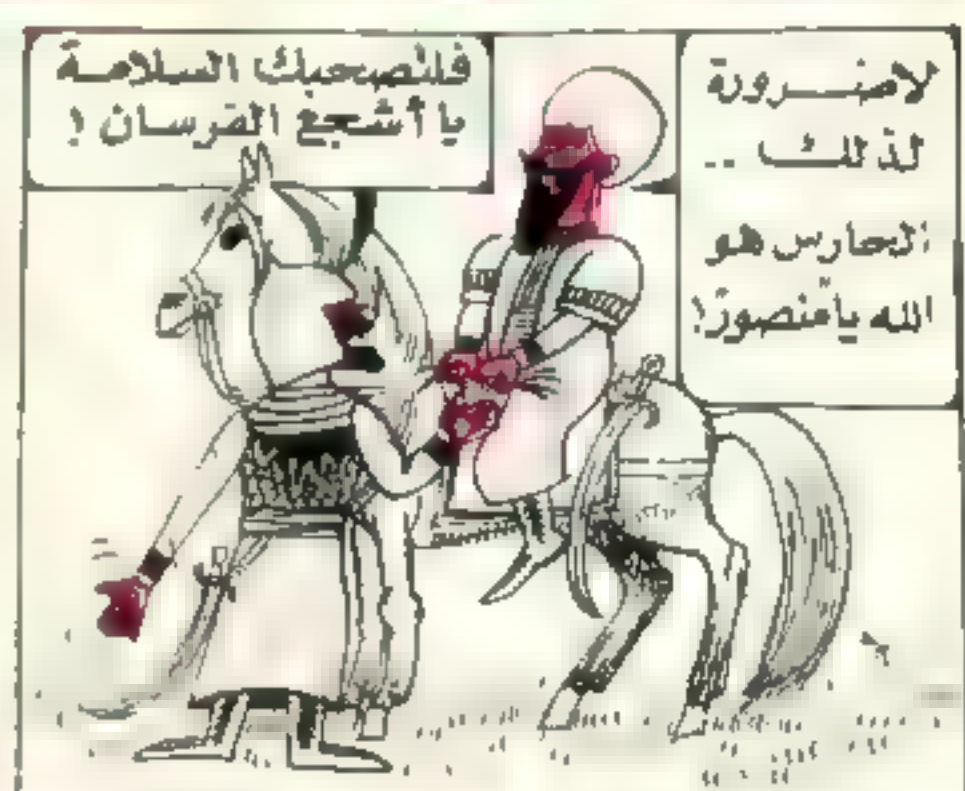 لاضرورة
لذلك ..
الحارس هو
الله يا منصور!
فلتصحبك السلامة
يا أشجع الفرسان !